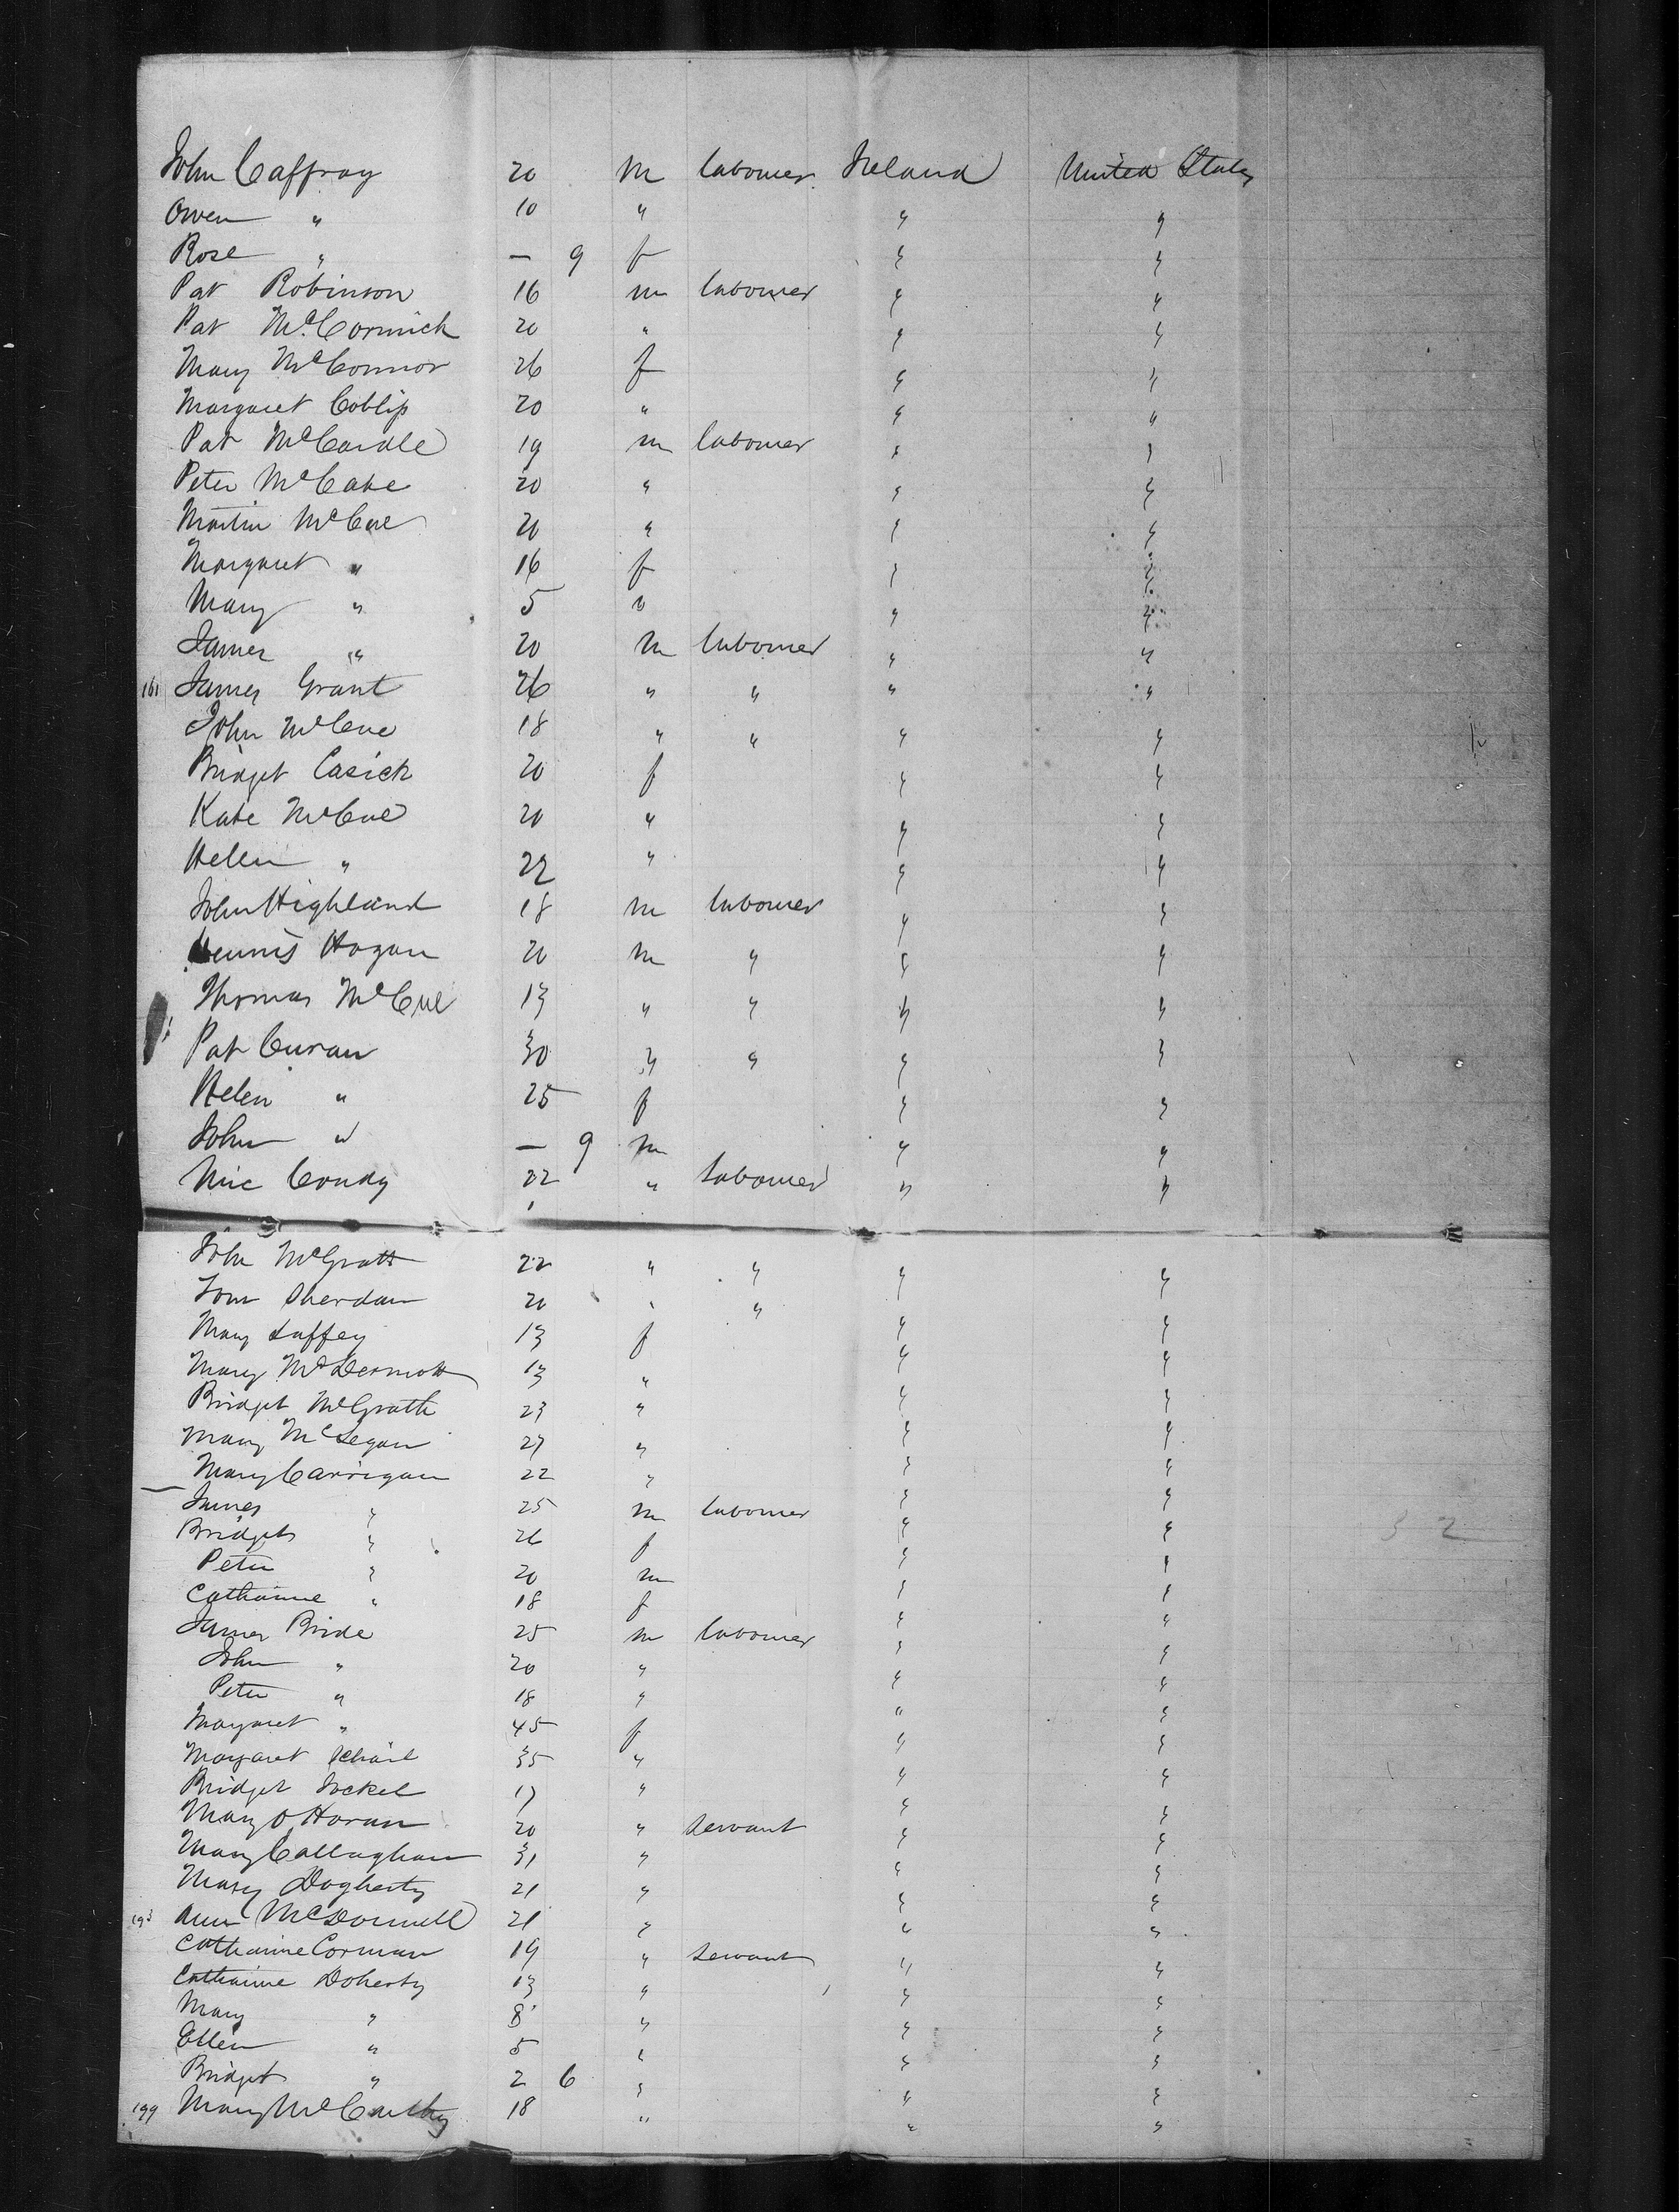 John Caffray 20 M labourer Ireland United States
Owen " 10 " " "
Rose " — 9 f " "
Pat Robinson 16 m labourer " "
Pat McCormick 20 " " "
Mary McConnor 26 f " "
Margaret Coblip 20 " " "
Pat McCardle 19 m labourer " "
Peter McCabe 20 " " "
Martin McCue 20 " " "
Margaret " 16 f " "
Mary " 5 " " "
James " 20 m labourer " "
161 James Grant 26 " " " "
John McCue 18 " " " "
Bridget Casick 20 f " "
Kate McCue 20 " " "
Helen " 22 " " "
John Highland 18 m labourer " "
Dennis Hogan 20 m " " "
Thomas McCue 13 " " " "
Pat Curan 30 " " " "
Helen " 25 f " "
John " — 9 m " "
Mic Condy 22 " labourer " "
John McGrath 22 " " " "
Tom Sherdan 20 " " " "
Mary Laffey 13 f " "
Mary McDermott 13 " " "
Bridget McGrath 23 " " "
Mary McLegan 27 " " "
Mary Carrigan 22 " " "
James " 25 m labourer " "
Bridget " 26 f " "
Peter " 20 m " "
Catharine " 18 f " "
James Bride 25 m labourer " "
John " 20 " " "
Peter " 18 " " "
Margaret " 45 f " "
Margaret 35 " " "
Bridget 17 " " "
Mary O Horan 20 " Servant " "
Mary Callaghan 31 " " "
Mary Dogherty 21 " " "
193 Ann McDonnell 21 " " "
Catharine Corman 19 " Servant " "
Catharine Doherty 13 " " "
Mary " 8 " " "
Ellen " 5 " " "
Bridget " 2 6 " " "
199 Mary McCarthy 18 " " "